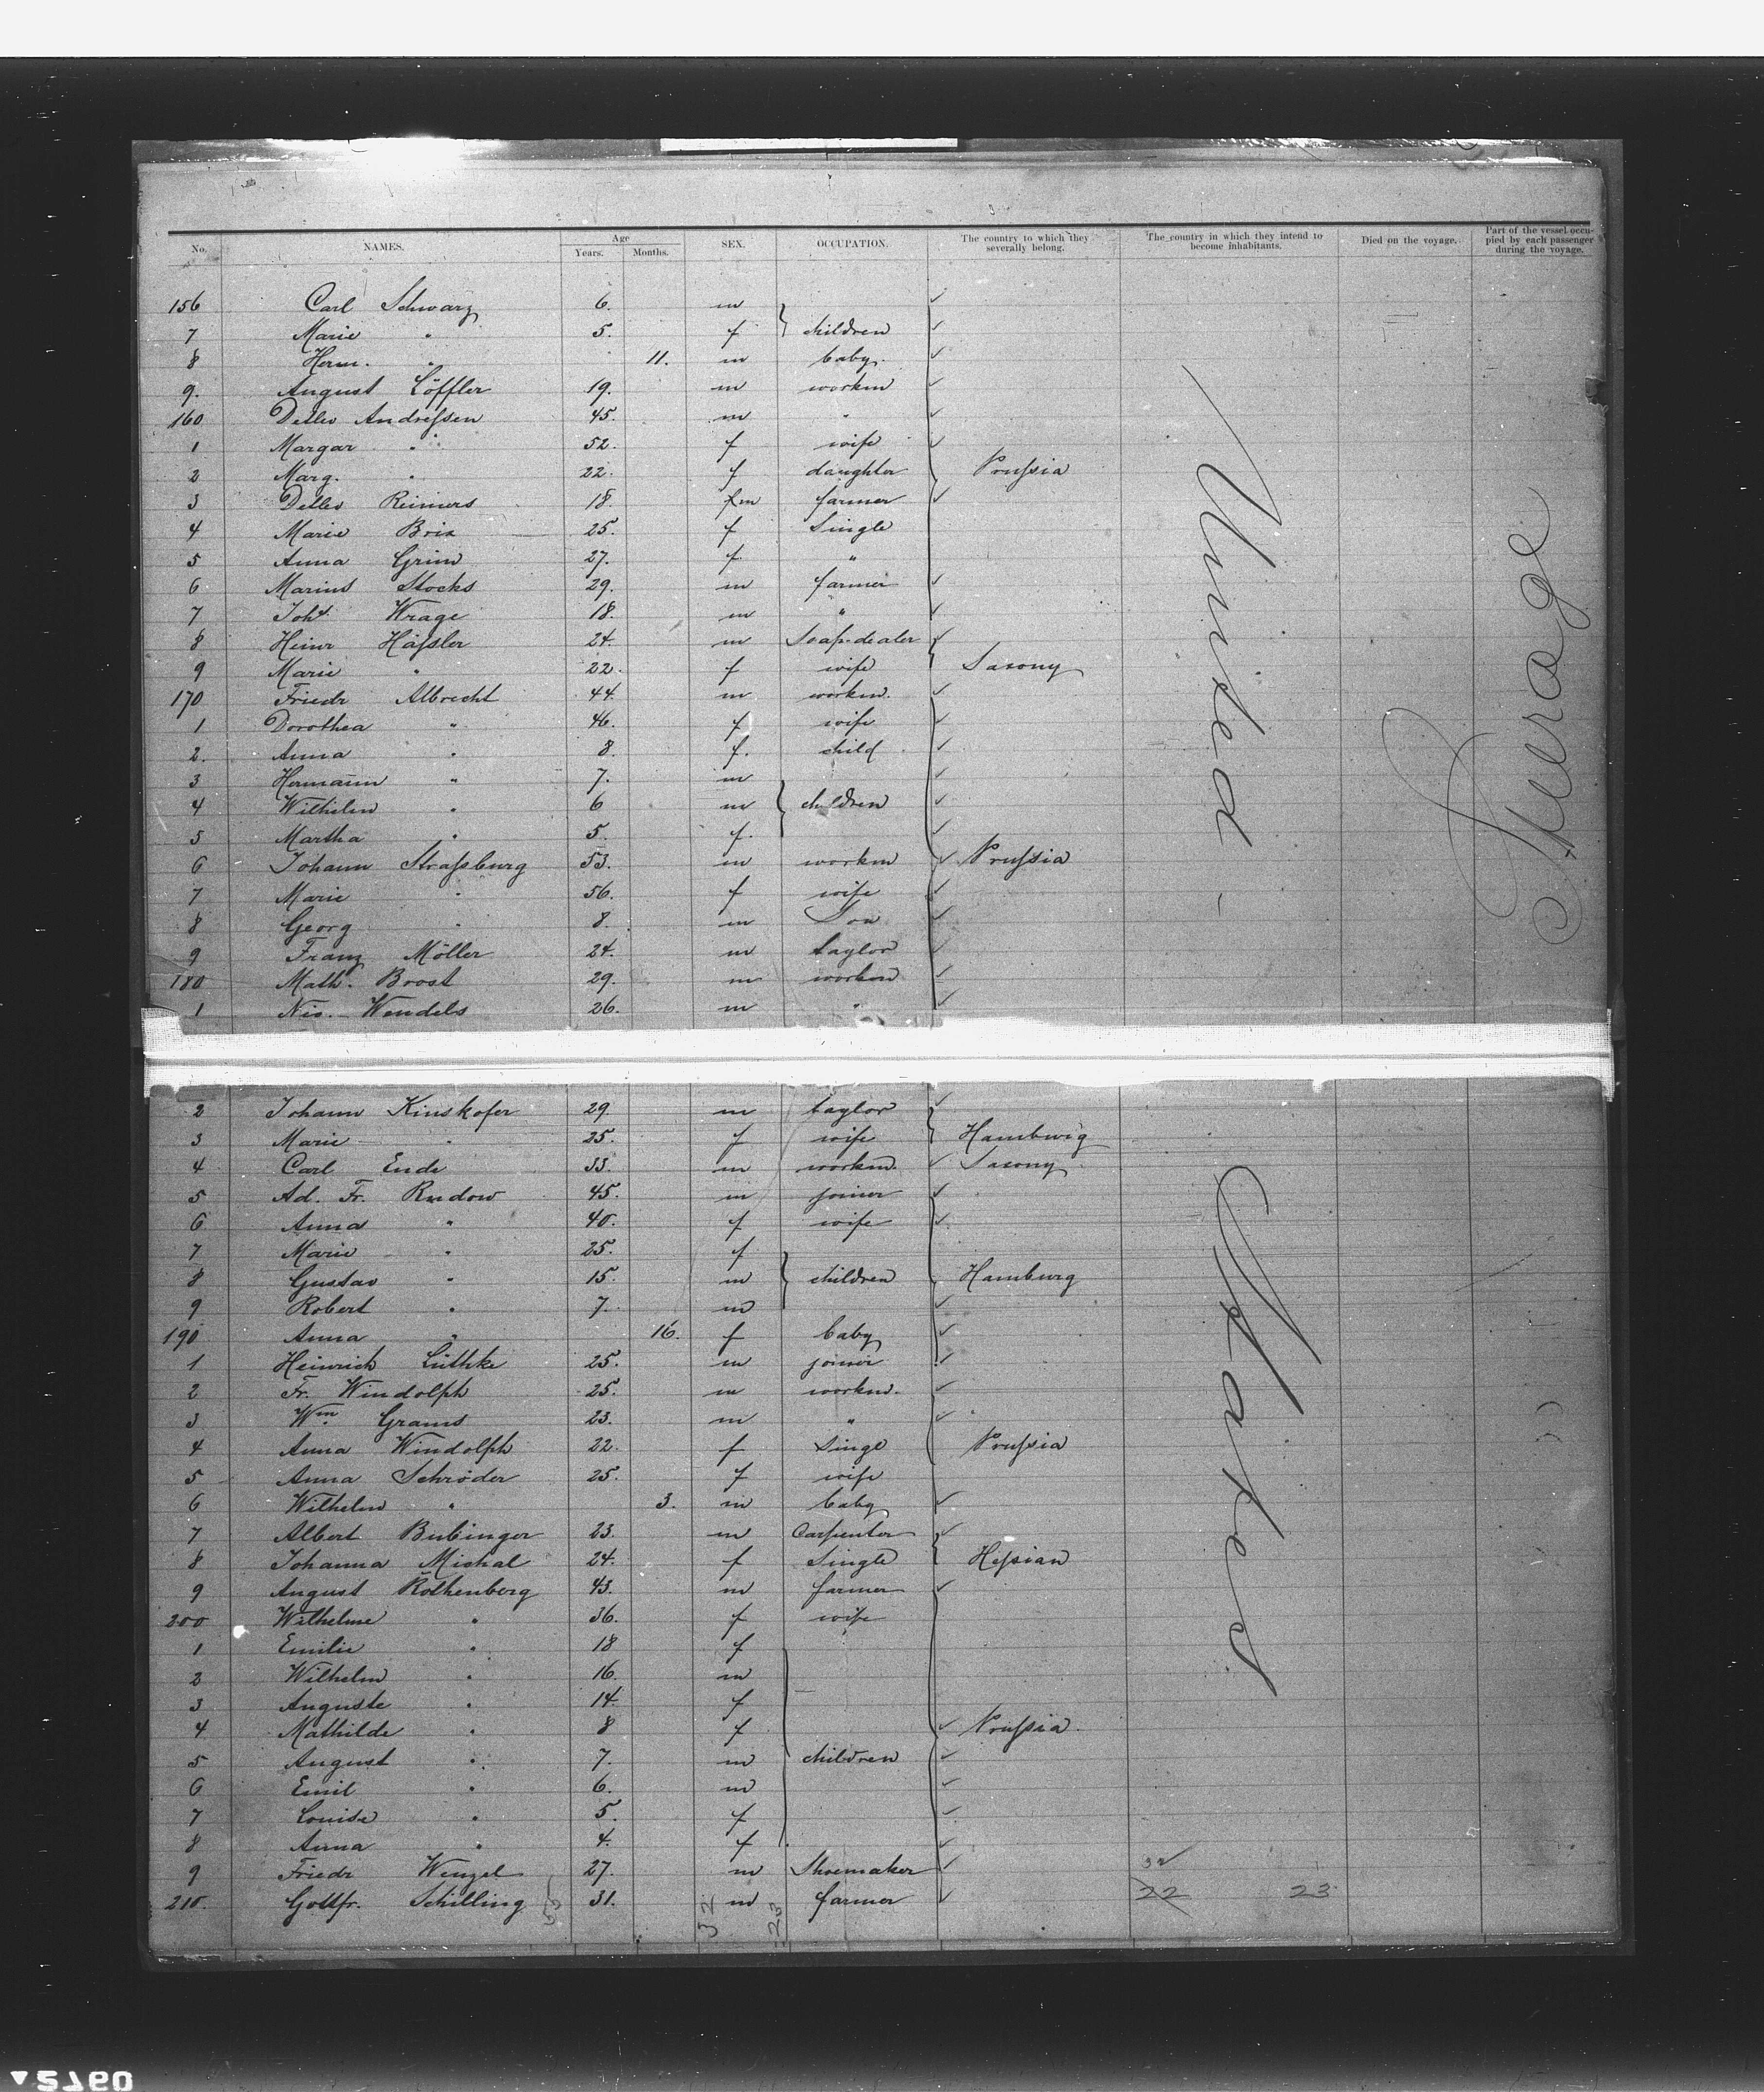 No. NAMES. Age Years. Months. SEX. OCCUPATION. The country to which they severally belong. The country in which they intend to become inhabitants. Died on the voyage. Part of the vessel occupied by each passenger during the voyage.
156 Carl Schwarz 6. m
7 Marie " 5. f children
8 Herm. " 11. m baby.
9. August Löffler 19. m workm
160 Detlev Andreſsen 45. m "
1 Margar " 52. f wife
2 Marg. " 22. f daughter Pruſsia
3 Detlev Reimers 18. m farmer
4 Marie Brix 25. f Single
5 Anna Grim 27. f "
6 Marius Stocks 29. m farmer
7 Joh. Wrage 18. m "
8 Heinr Häſsler 24. m Soap-dealer
9 Marie " 22. f wife Saxony
170 Friedr Albrecht 44. m workm.
1 Dorothea " 46. f wife
2. Anna " 8. f. child
3 Hermann " 7. m
4 Wilhelm " 6 m children
5 Martha " 5. f.
6 Johann Straſsburg 53. m workm Pruſsia
7 Marie " 56. f wife
8 Georg " 8. m Son
9 Franz Möller 24. m taylor
180 Math. Brost 29. m workm
1 Nic. Wendels 26. m "
2 Johann Kinskofer 29. m taylor
3 Marie " 25. f wife Hamburg
4 Carl Ende 33. m workm. Saxony
5 Ad. Fr. Rudow 45. m joiner
6 Anna " 40. f wife
7 Marie " 25. f
8 Gustav " 15. m children Hamburg
9 Robert " 7. m
190 Anna " 16. f baby
1 Heinrich Lüthke 25. m joiner
2 Fr. Windolph 25. m workm.
3 Wm Grams 23. m "
4 Anna Windolph 22. f Singe Pruſsia
5 Anna Schröder 25. f wife
6 Wilhelm " 3. m baby
7 Albert Bubinger 23. m Carpenter
8 Johanna Michal 24. f Single Heſsian
9 August Rothenberg 43. m farmer
200 Wilhelme " 36. f wife
1 Emilie " 18 f
2 Wilhelm " 16. m
3 Auguste " 14. f
4 Mathilde " 8 f Pruſsia
5 August " 7. m children
6 Emil " 6. m
7 Louise " 5. f
8 Anna " 4. f
9 Friedr Wenzel 27. m Shoemaker
210. Gottfr. Schilling 31. m farmer 22 23
32 23
United - States
Steerage